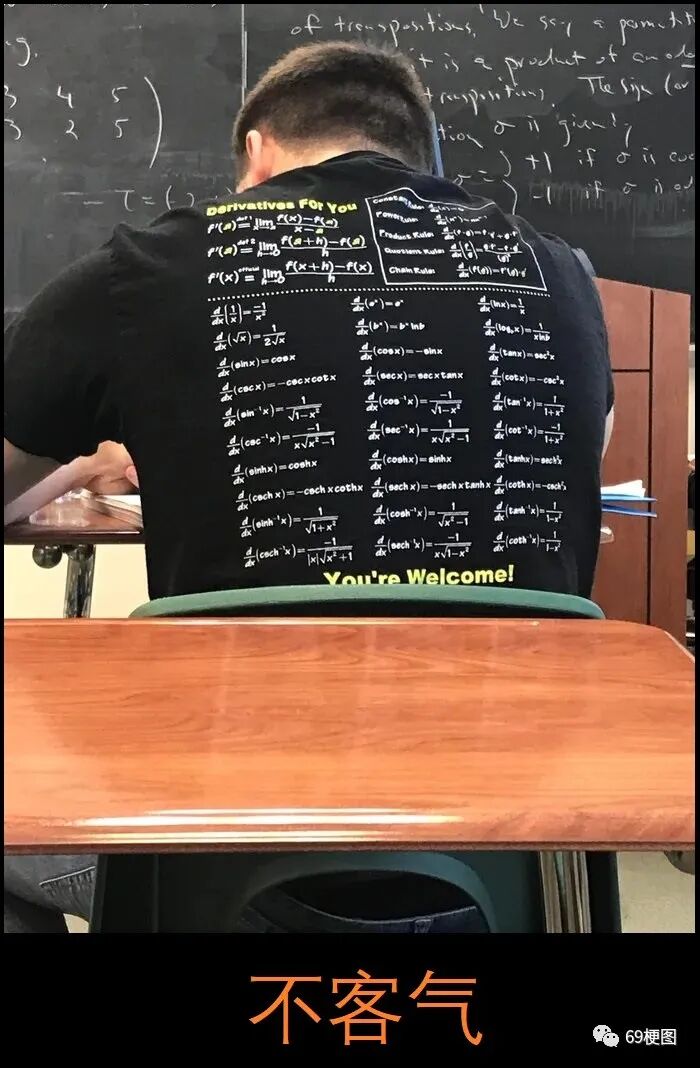 of transpositions. We say a
it is a product of an
The sign
is given
+1 if σ is
-1 if σ is
3 4 5
3 2 5
Derivatives For You
f'(a) def 1 = lim x→a (f(x)−f(a))/(x−a)
f'(a) def 2 = lim h→0 (f(a+h)−f(a))/h
f'(x) official = lim h→0 (f(x+h)−f(x))/h
Power Rule:
Product Rule:
Quotient Rule:
Chain Rule:
d/dx(1/x)=−1/x²
d/dx(√x)=1/(2√x)
d/dx(sinx)=cosx
d/dx(cscx)=−cscxcotx
d/dx(sin⁻¹x)=1/√(1−x²)
d/dx(csc⁻¹x)=−1/(x√(x²−1))
d/dx(sinhx)=coshx
d/dx(cschx)=−cschxcothx
d/dx(sinh⁻¹x)=1/√(1+x²)
d/dx(csch⁻¹x)=−1/(|x|√(x²+1))
d/dx(eˣ)=eˣ
d/dx(bˣ)=bˣlnb
d/dx(cosx)=−sinx
d/dx(secx)=secxtanx
d/dx(cos⁻¹x)=−1/√(1−x²)
d/dx(sec⁻¹x)=1/(x√(x²−1))
d/dx(coshx)=sinhx
d/dx(sechx)=−sechxtanhx
d/dx(cosh⁻¹x)=1/√(x²−1)
d/dx(sech⁻¹x)=−1/(x√(1−x²))
d/dx(lnx)=1/x
d/dx(log_b x)=1/(xlnb)
d/dx(tanx)=sec²x
d/dx(cotx)=−csc²x
d/dx(tan⁻¹x)=1/(1+x²)
d/dx(cot⁻¹x)=−1/(1+x²)
d/dx(tanhx)=sech²x
d/dx(cothx)=−csch²x
d/dx(tanh⁻¹x)=1/(1−x²)
d/dx(coth⁻¹x)=1/(1−x²)
You're Welcome!
不客气
69梗图